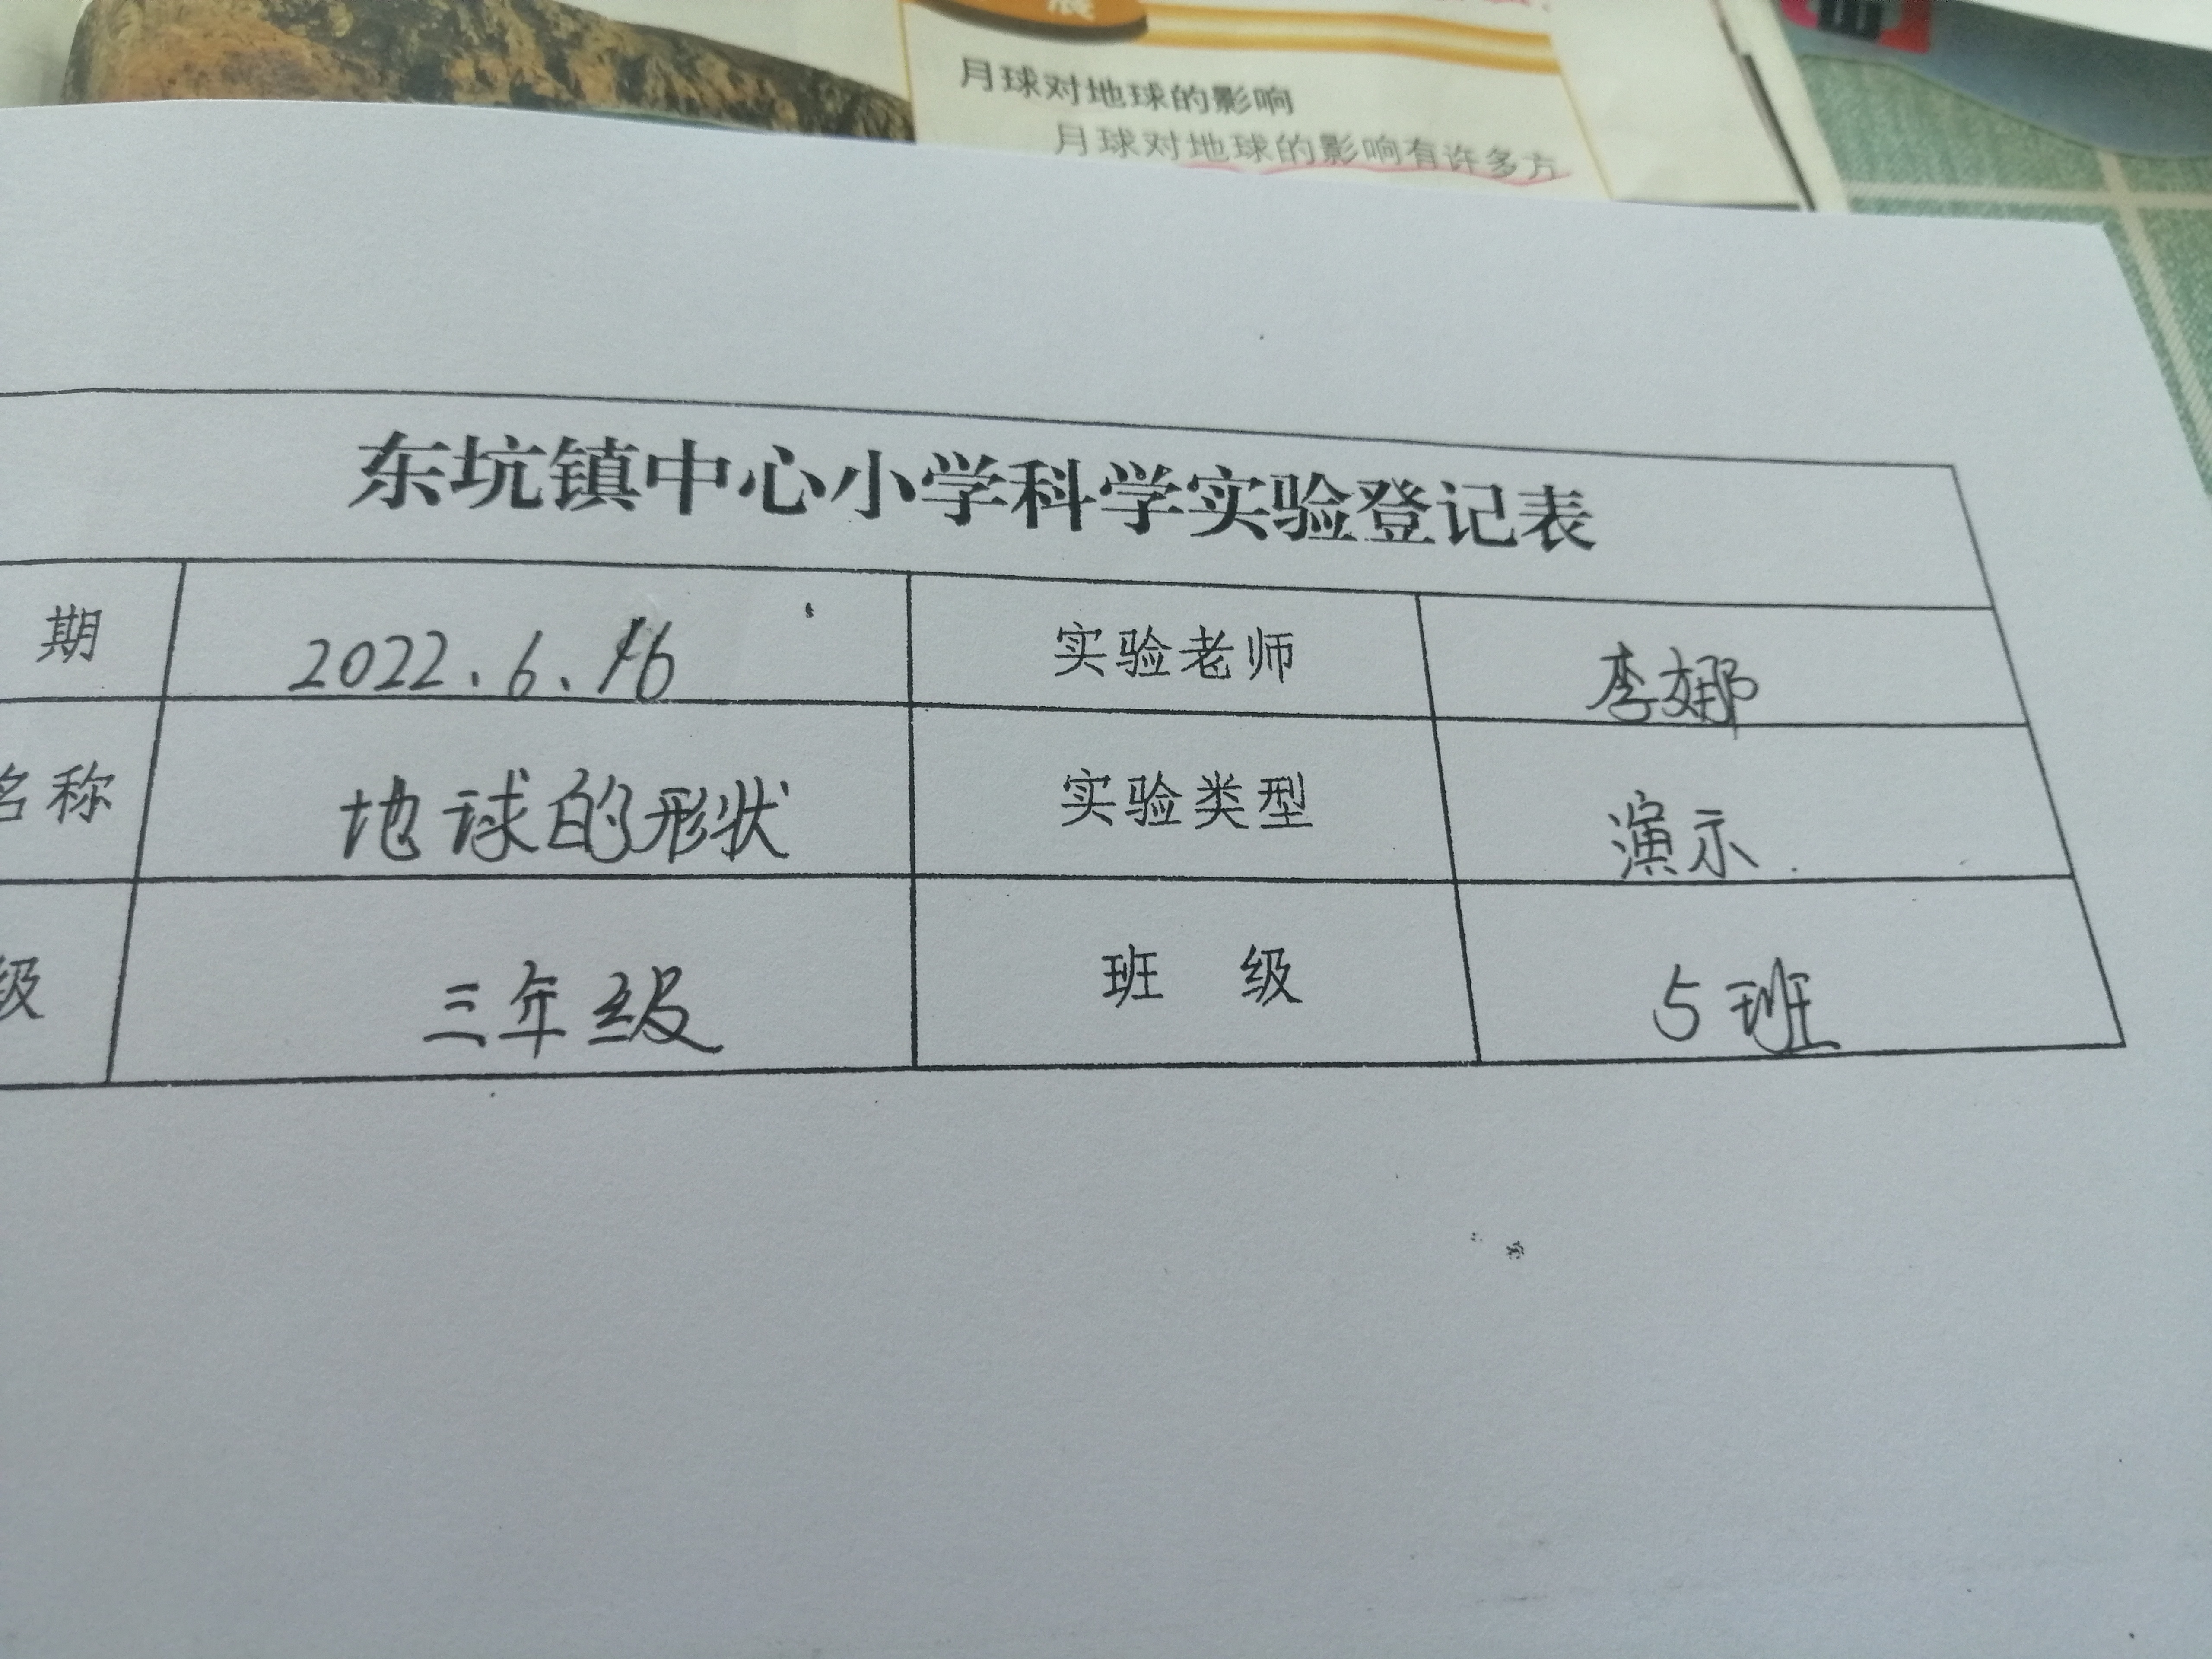 展
月球对地球的影响
月球对地球的影响有许多方
东坑镇中心小学科学实验登记表
期 2022.6.16 实验老师 李娜
名称 地球的形状 实验类型 演示.
级 三年级 班 级 5班